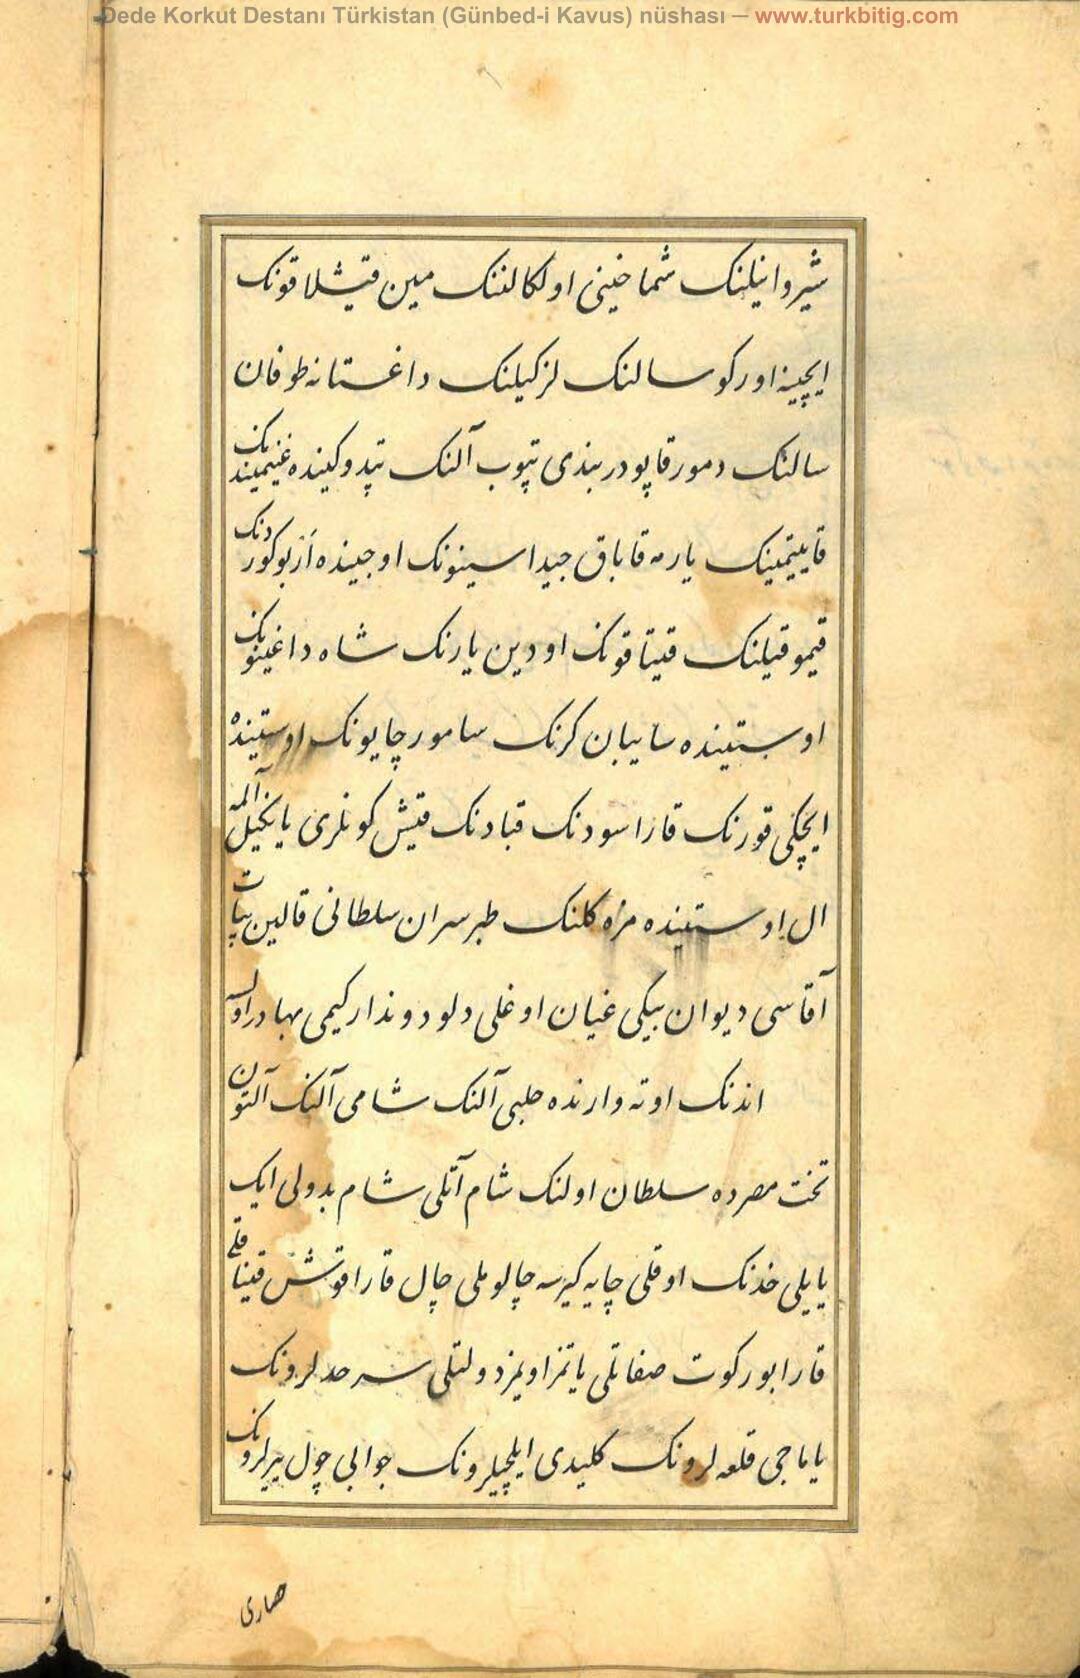 Dede Korkut Destanı Türkistan (Günbed-i Kavus) nüshası — www.turkbitig.com
شیروانیلنک شماخینی اولکالننک مین قیشلاقونک
ایچینه اورکو سالنک لزکیلنک داغستانه طوفان
سالنک دمور قاپو دربندی تپوب آلنک تپدوکینده غنیمینک
قاییتمینک یارمه قاباق جیداسینونک اوجینده از بوکوردنک
قیموقیلنک قیتاقونک اودین یارنک شاه داغینونک
اوستینده سایبان کرنک سامور چایونک اوستینده
ایچکی قورنک قارا سودنک قبادنک قیش کونلری یانکیل آلمه
ال اوستینده مزه کلنک طبرسران سلطانی قالین بیات
آقاسی دیوان بیکی غیان اوغلی دلو دوندار کیمی بهادر اوله
اندنک اوته وارنده حلبی آلنک شامی آلنک آلتون
تخت مصرده سلطان اولنک شام آتلی شام بدولی ایک
یایلی خدنک اوقلی چایه کیرسه چالوملی چال قارا قوش قیناقلی
قارا بورکوت صفاتلی یاتمز اویمز دولتلی سرحدلرونک
یاماجی قلعه لرونک کلیدی ایلچیلرونک جوابی چول یرلرونک